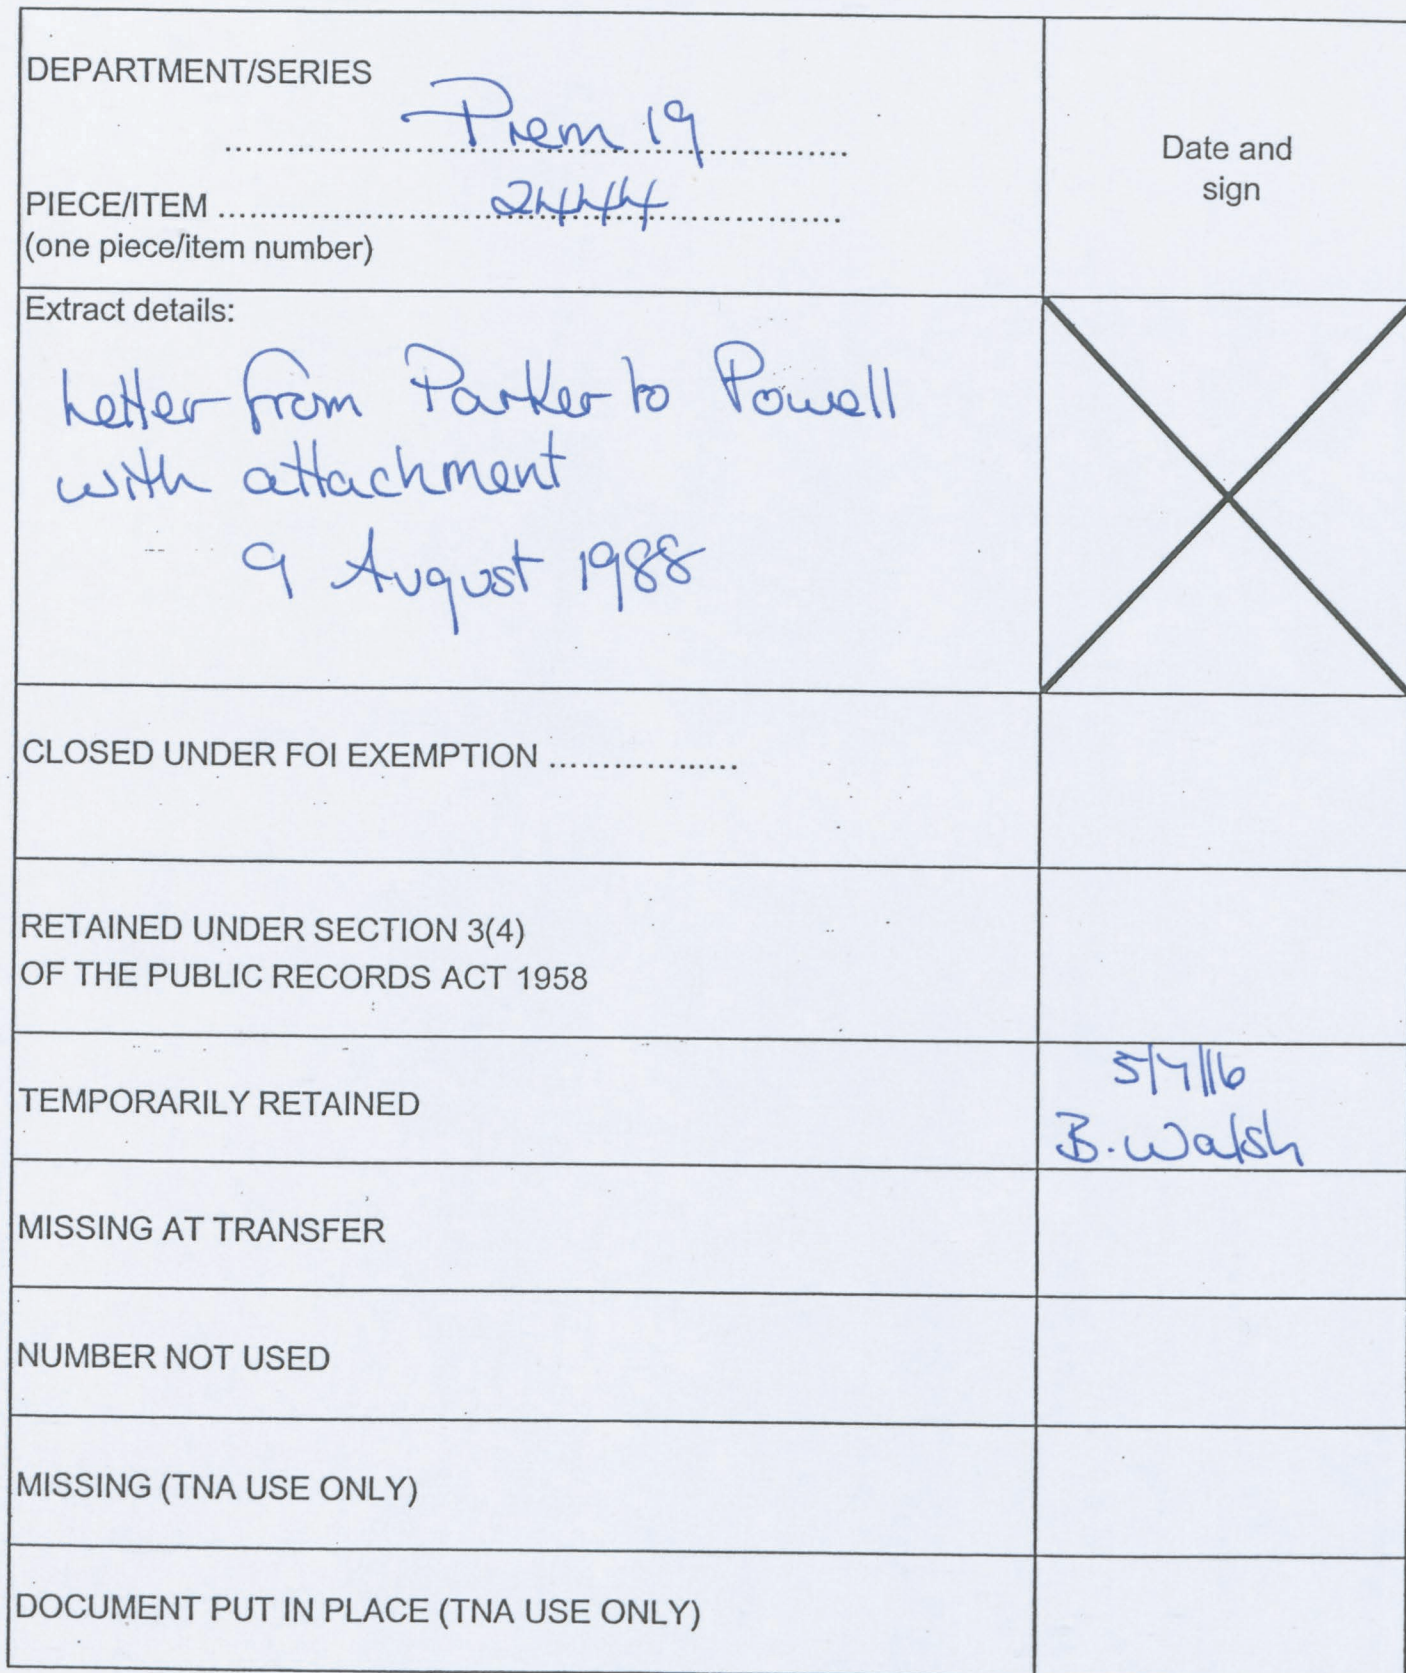 DEPARTMENT/SERIES
Prem 19
Date and
sign
PIECE/ITEM 2444
(one piece/item number)
Extract details:
Letter from Parker to Powell
with attachment
9 August 1988
CLOSED UNDER FOI EXEMPTION ..................
RETAINED UNDER SECTION 3(4)
OF THE PUBLIC RECORDS ACT 1958
TEMPORARILY RETAINED
5/7/16
B. Walsh
MISSING AT TRANSFER
NUMBER NOT USED
MISSING (TNA USE ONLY)
DOCUMENT PUT IN PLACE (TNA USE ONLY)